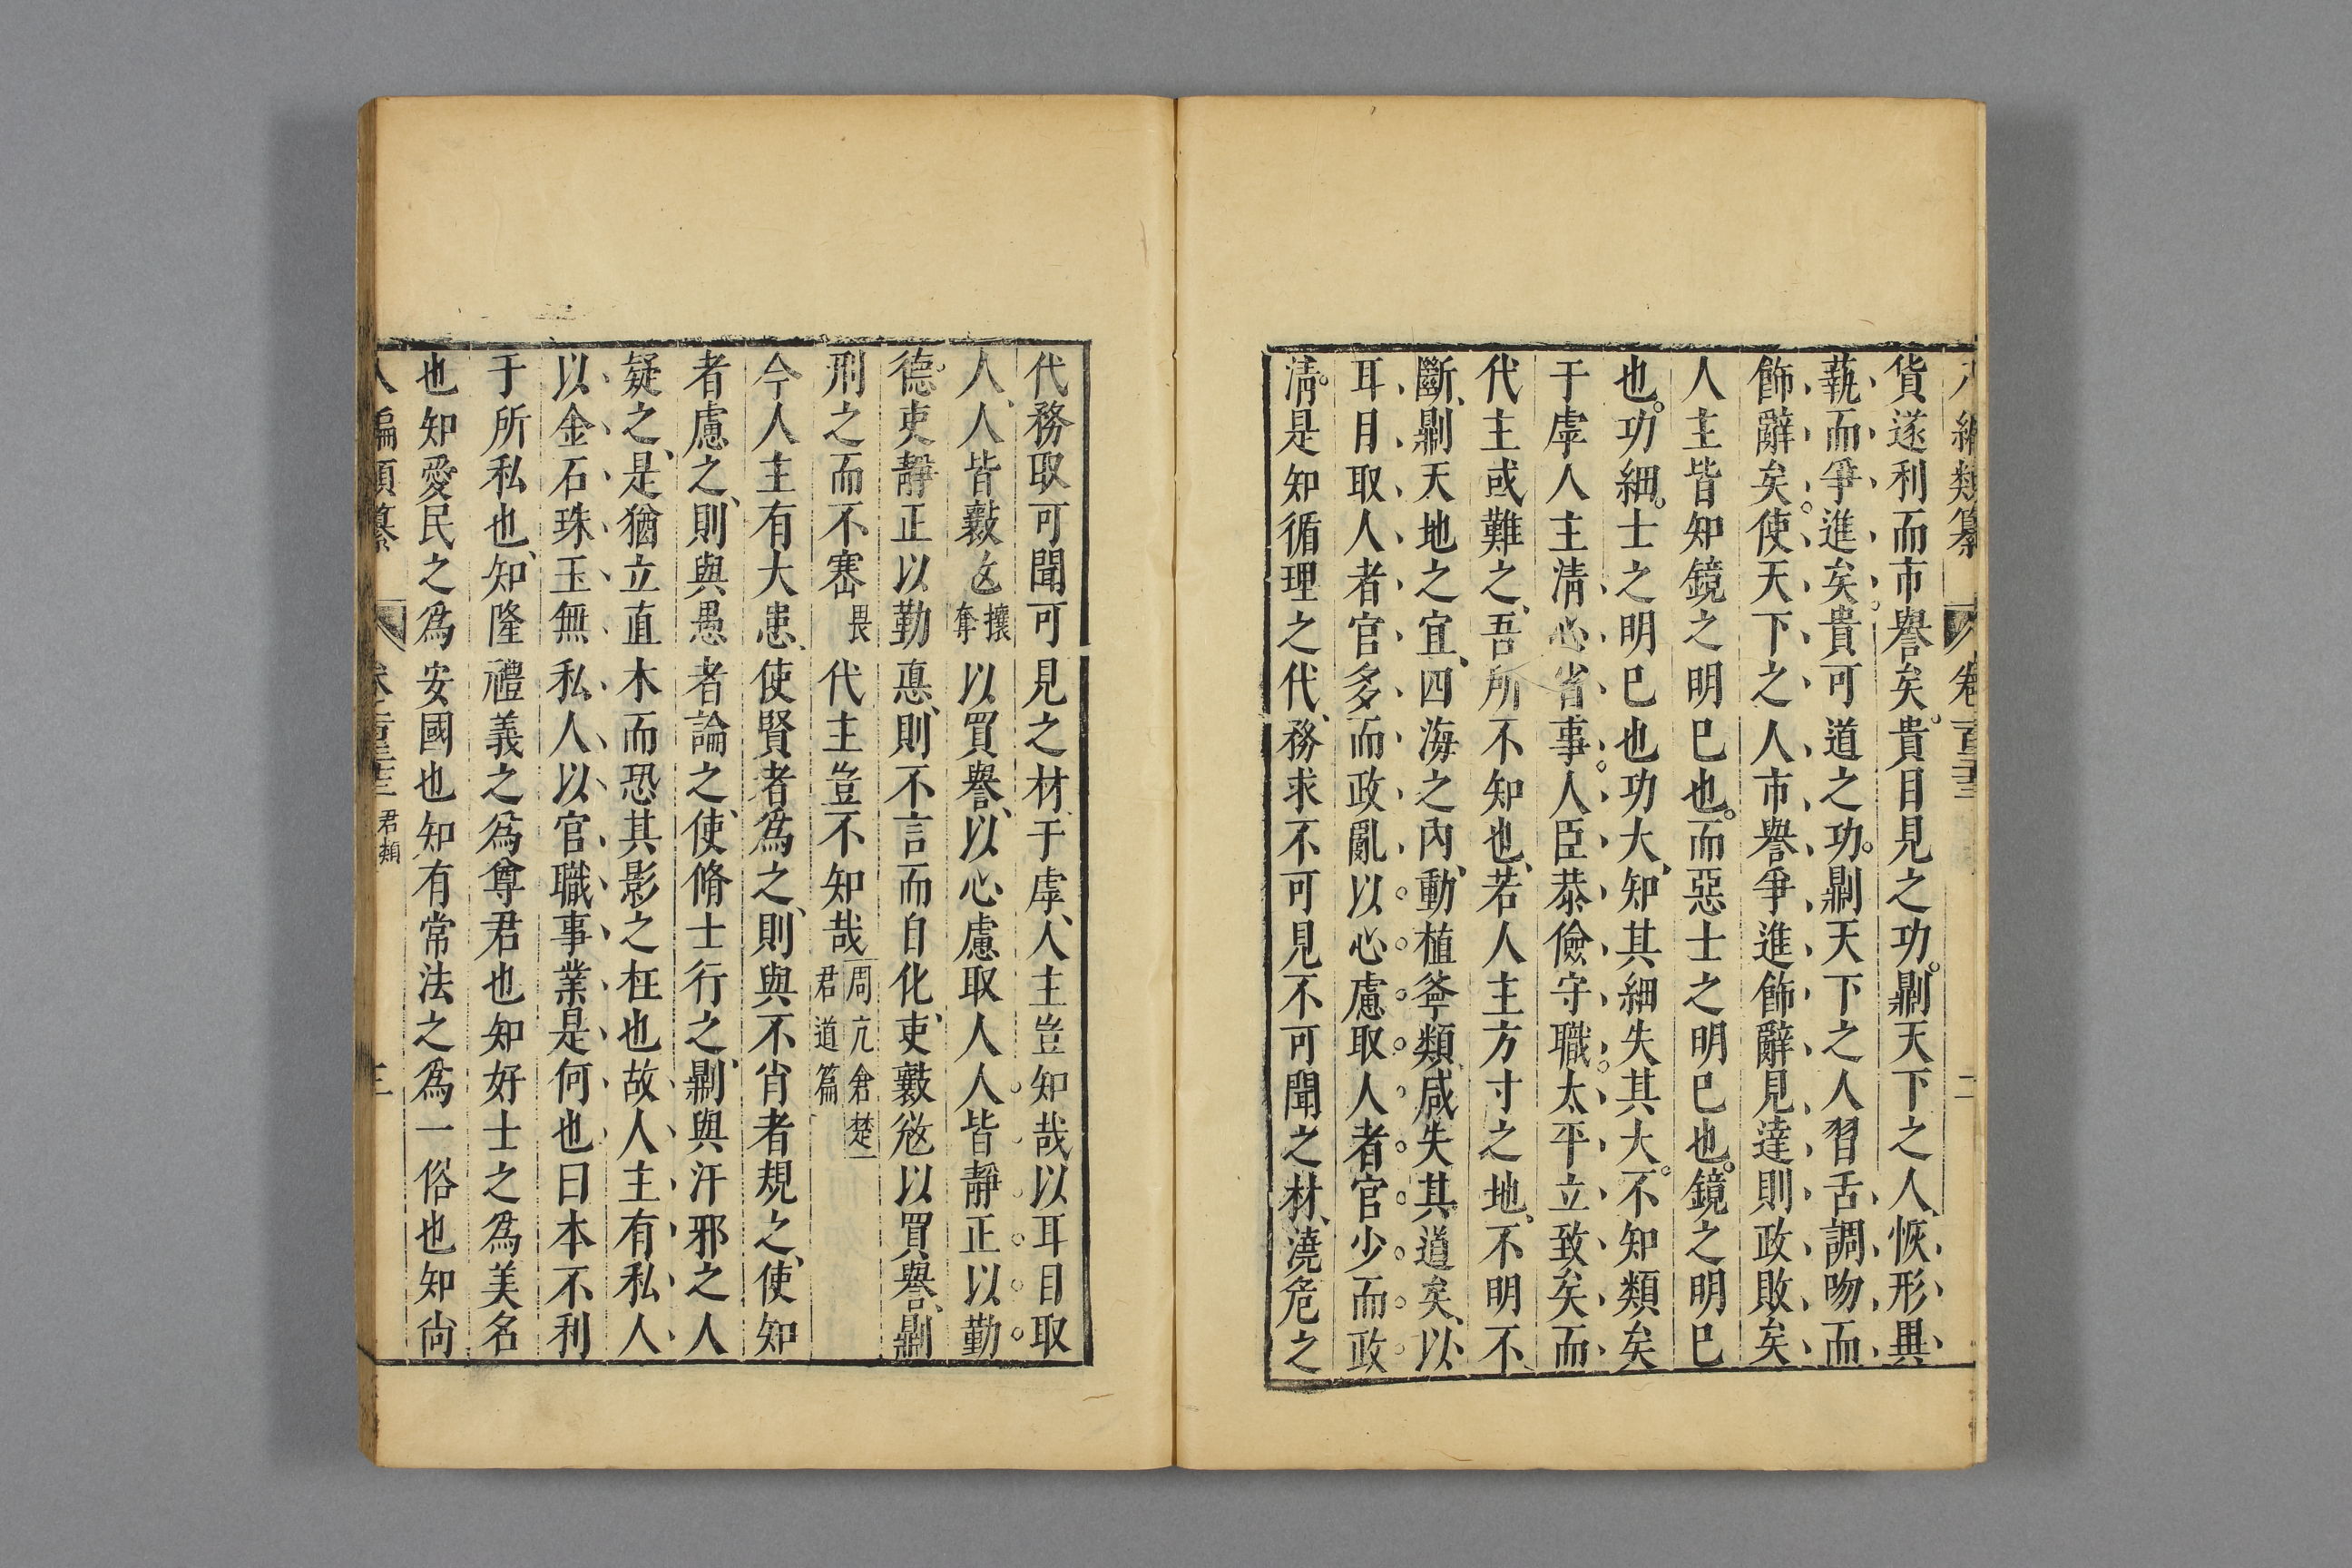 類纂　卷
貨遂利而市譽矣。貴目見之功。𠟭天下之人、恢形異
蓺而爭進矣。貴可道之功。𠟭天下之人習舌調吻而
飾辭矣。使天下之人市譽爭進飾辭見達則政敗矣
人主皆知鏡之明巳也。而惡士之明巳也。鏡之明巳
也。功細。士之明巳也功大、知其細失其大。不知類矣
于虖人主清心省事。人臣恭儉守職。太平立致矣而
代主或難之、吾所不知也、若人主方寸之地、不明不
斷、𠟭天地之宜、四海之內、動植類、咸失其道矣、以
耳目取人者官多而政亂以心慮取人者官少而政
清。是知循理之代、務求不可見不可聞之材、澆危之
代務取可聞可見之材、于虖、人主豈知哉以耳目取
人、人皆攘奪以買譽、以心慮取人人皆靜正以勤
德。吏靜正以勤悳、則不言而自化、吏以買譽、𠟭
刑之而不畏代主豈不知哉周亢倉楚君道篇
今人主有大患、使賢者為之、則與不肖者規之、使知
者慮之、則與愚者論之、使脩士行之、𠟭與汙邪之人
疑之、是猶立直木而恐其影之枉也故人主有私人
以金石珠玉無私人以官職事業是何也曰本不利
于所私也、知隆禮義之為尊君也知好士之為美名
也知愛民之為安國也知有常法之為一俗也知尚
編類纂　卷　君類　三